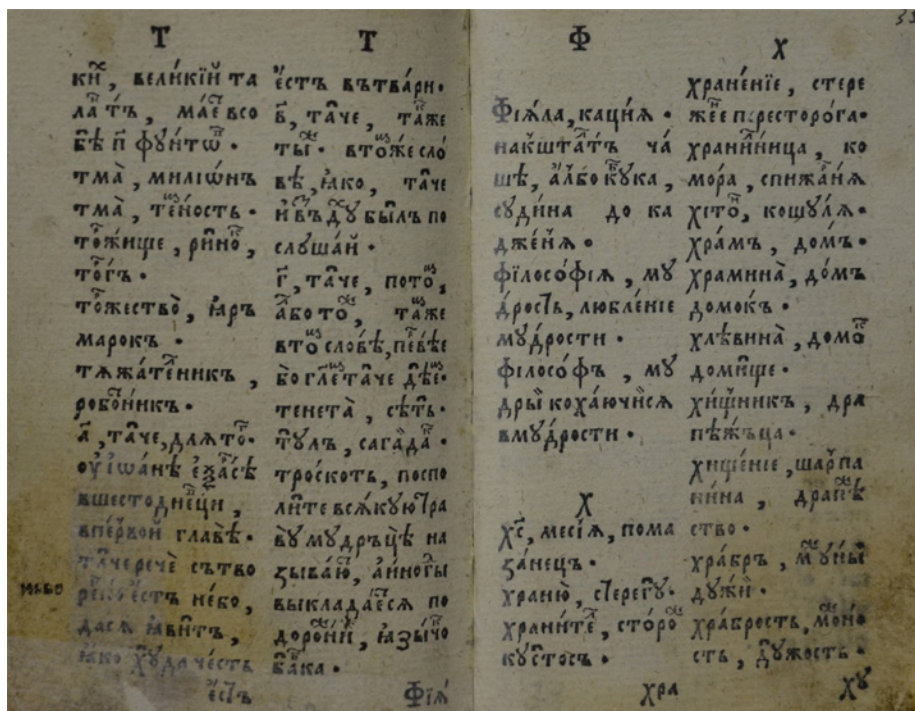 Т
ки, великій та
ла́тъ, ма́е всо
бѣ п҃ фу́нтѡ.
тма̀, милїѡ́нъ
тма̀, те́ность.
то́жище, ри́но,
то́гъ.
то́жество̀, ꙗ́р
марокъ.
тѧжа́те́никъ,
робо́никъ.
а҃, та́че, длѧ то.
ѹ҆ іѡа́нѣ е҆ѯа́сѣ
вшестодне́ци,
впе́рвой главѣ.
та́че речѐ сътво
не́бо,
дасѧ ꙗ҆ви́тъ,
ꙗ҆́ко
е҆́стъ
Т
е҆́стъ вътва́ри.
в҃, та́че, та́же
ты́. вто́же сло́
вѣ, ꙗ҆ко, та́че
и҆ въдꙋ былъ по
слꙋ́шай.
г҃, та́че, пото́,
а҆́бо то́, та́же
вто́ словѣ, пе́вѣе
бо гл҃е та́че дѣ́е.
тенета̀, сѣ́ть.
тꙋ́лъ, сага́да.
тро́скотъ, поспо
ли́те всѧ́кꙋю тра
вꙋ̀ мꙋдръцѣ на
зыва́ю, а҆ и҆но́гы
выклада́е́сѧ по
доро́ни, ꙗ҆зы́чо
ба́ка.
Фїѧ́
Ф
Фїѧ́ла, ка́цїѧ.
накшта́тъ ча́
шѣ, а҆́лбо кꙋ́ка,
сꙋди́на до ка
дже́нѧ.
фїлосо́фїѧ, мꙋ́
дрость, любле́нїе
мꙋ́дрости.
фїлосо́фъ, мꙋ́
дры́ коха́ючи́йсѧ
вмꙋ́дрости.
Х
х҃с, месі́ѧ, пома
за́нецъ.
храню̀, стерегꙋ̀.
храни́те, сто́ро
кꙋ́стосъ.
хра
Х
хране́нїе, стере
же́е пересторо́га.
храни́лница, ко
мо́ра, спижа́нѧ
хіто́, кошꙋ́лѧ.
хра́мъ, до́мъ.
храмина̀, до́мъ
домо́къ.
хлѣвина̀, домо́
доми́ще.
хи́щникъ, дра
пѣ́жъца.
хище́нїе, ша́рпа
ни́на, драпѣ́
ство.
хра́бръ, мꙋ́жны
дꙋ́жи.
хра́брость, мо́но
сть, дꙋ́жость.
хꙋ